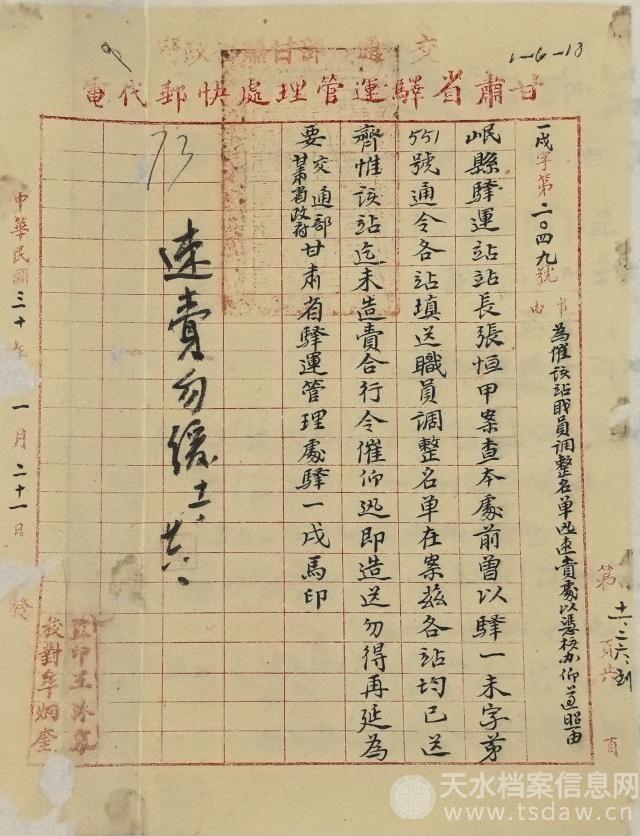 1-6-13
交通部甘肅省政府
甘肅省驛運管理處快郵代電
一戌字第二〇四九號
事由
為催該站職員調整名單迅速賫處以憑核办仰遵照由
第 頁共 頁
十一、二六、到
岷縣驛運站站長張恒甲案查本處前曾以驛一未字第
551號通令各站填送職員調整名单在案茲各站均已送
齊惟該站迄未造賫合行令催仰迅即造送勿得再延為
要交通部甘肅省政府甘肅省驛運管理處驛一戌馬印
速賫勿緩
73
監印王
校對牟炳奎
中華民國三十年一月二十一日發
天水档案信息网
www.tsdaw.cn